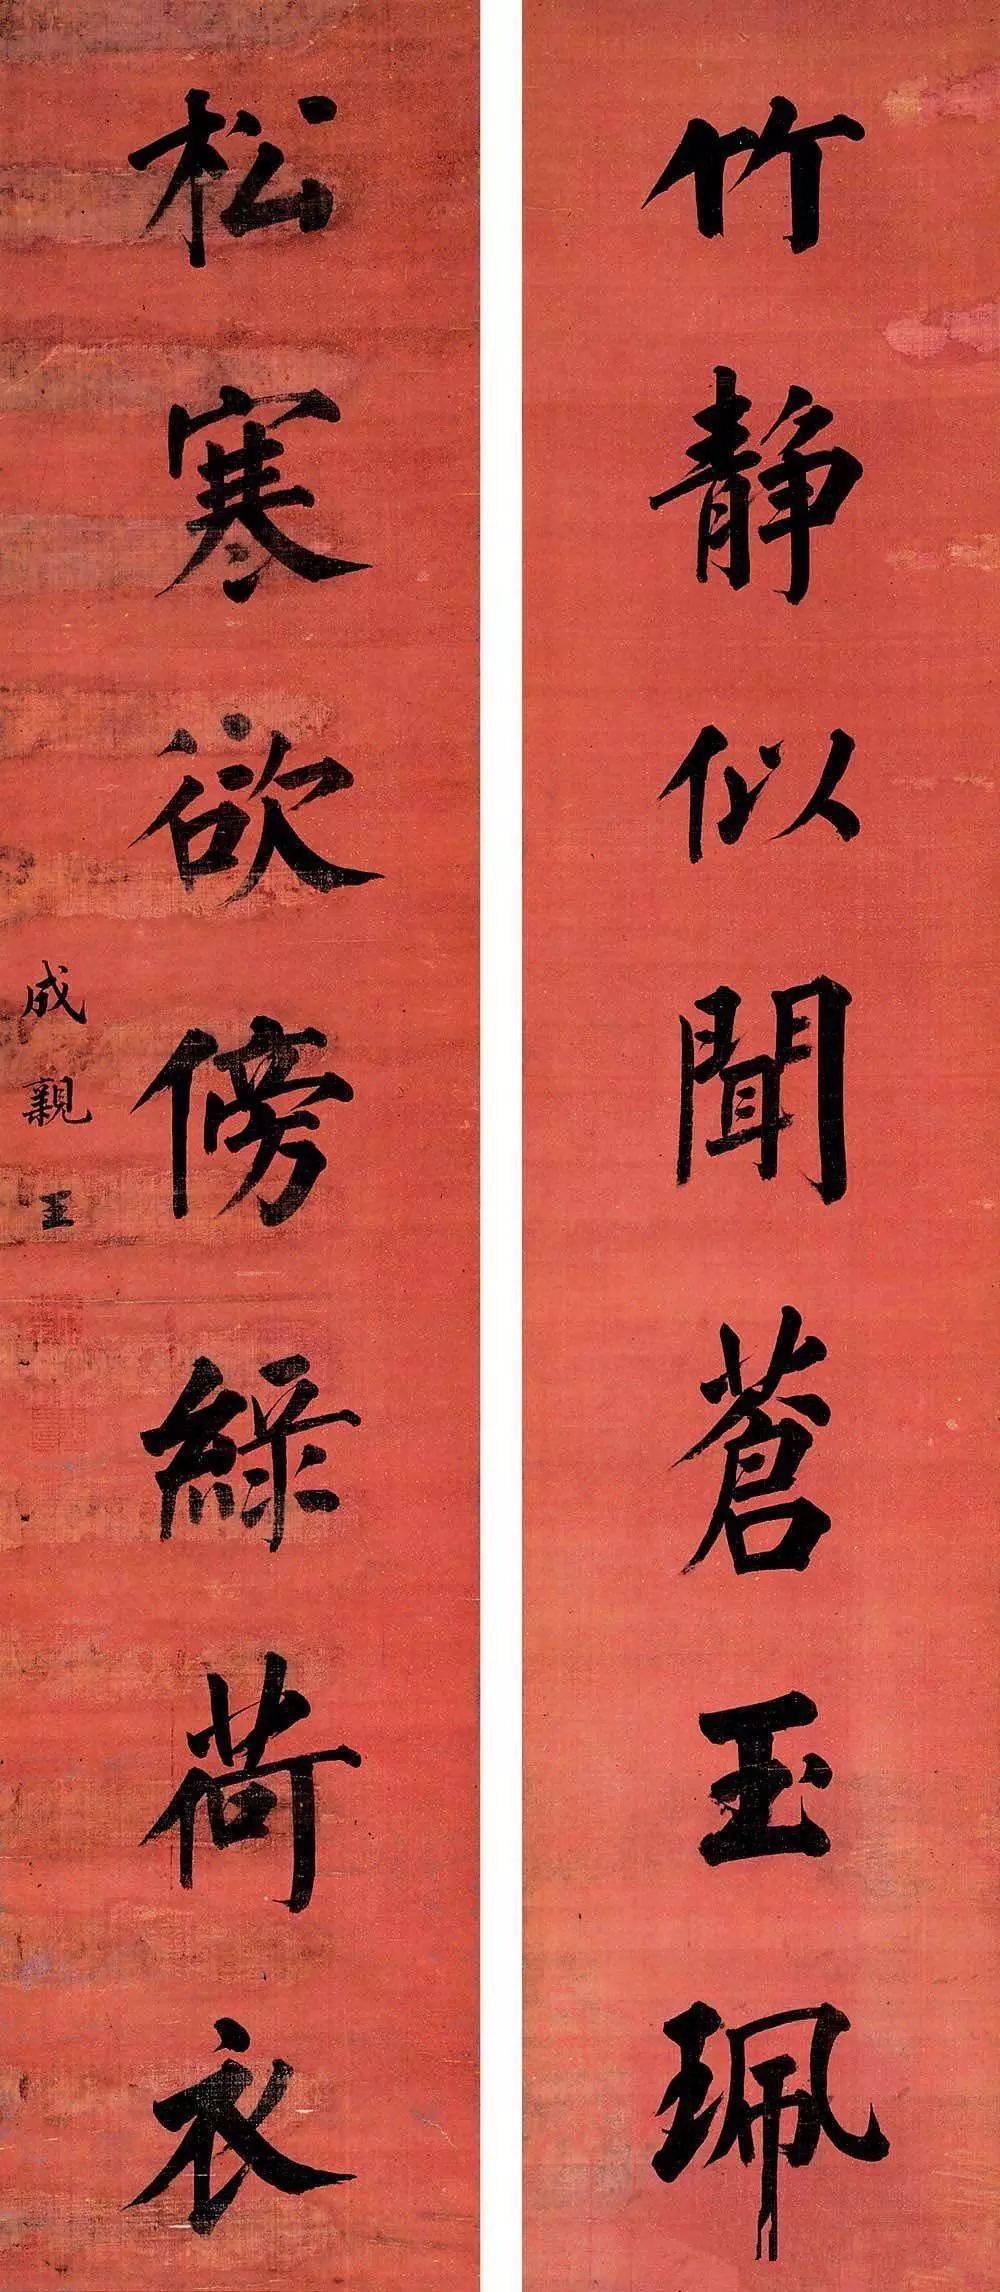 竹靜似聞蒼玉珮
松寒欲傍綠荷衣
成親王